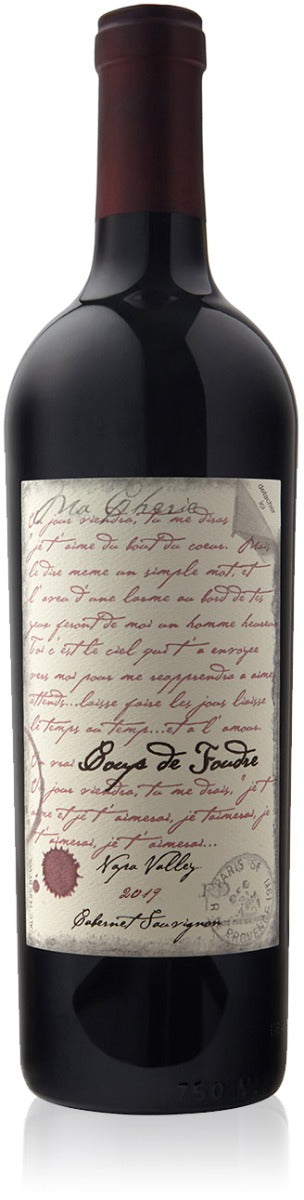 Ma Cherie
Un jour viendra, tu me diras
je t'aime du bout du coeur. Mais
le dire meme un simple mot, et
l'aveu d'une larme au bord de tes
yeux feront de moi un homme heureux
Toi c'est le ciel qui t'a envoyee
vers moi pour me reapprendre a aimer
attends...laisse faire les jours laisse
le temps au temps...et a l'amour.
Un vrai Coup de Foudre
Un jour viendra, tu me dirais, "je t'
aime et je t'aimerai, je t'aimerai, je
t'aimerai, je t'aimerai...
Napa Valley
2019
Cabernet Sauvignon
detacher
ici
PARIS
PROVENCE
750 ML